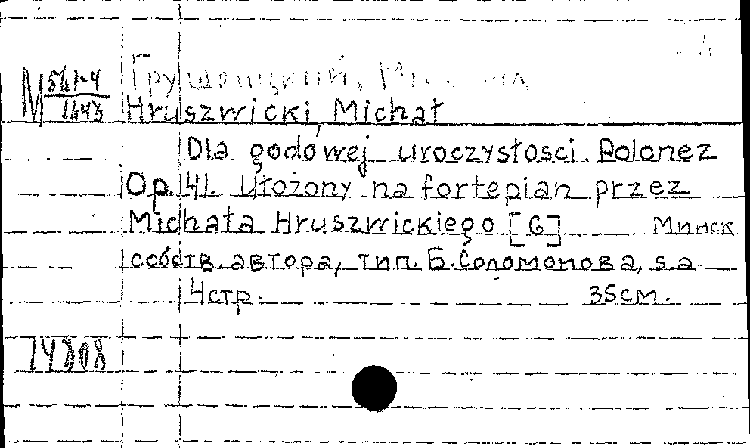 Hruszwicki, Michał
Dla godowej uroczystosci. Polonez
Op. 41. Ułożony na fortepian przez
Michała Hruszwickiego [G] Минск
собств. автора, тип. Б. Соломонова, s.a
4 стр. 35 см.
14808